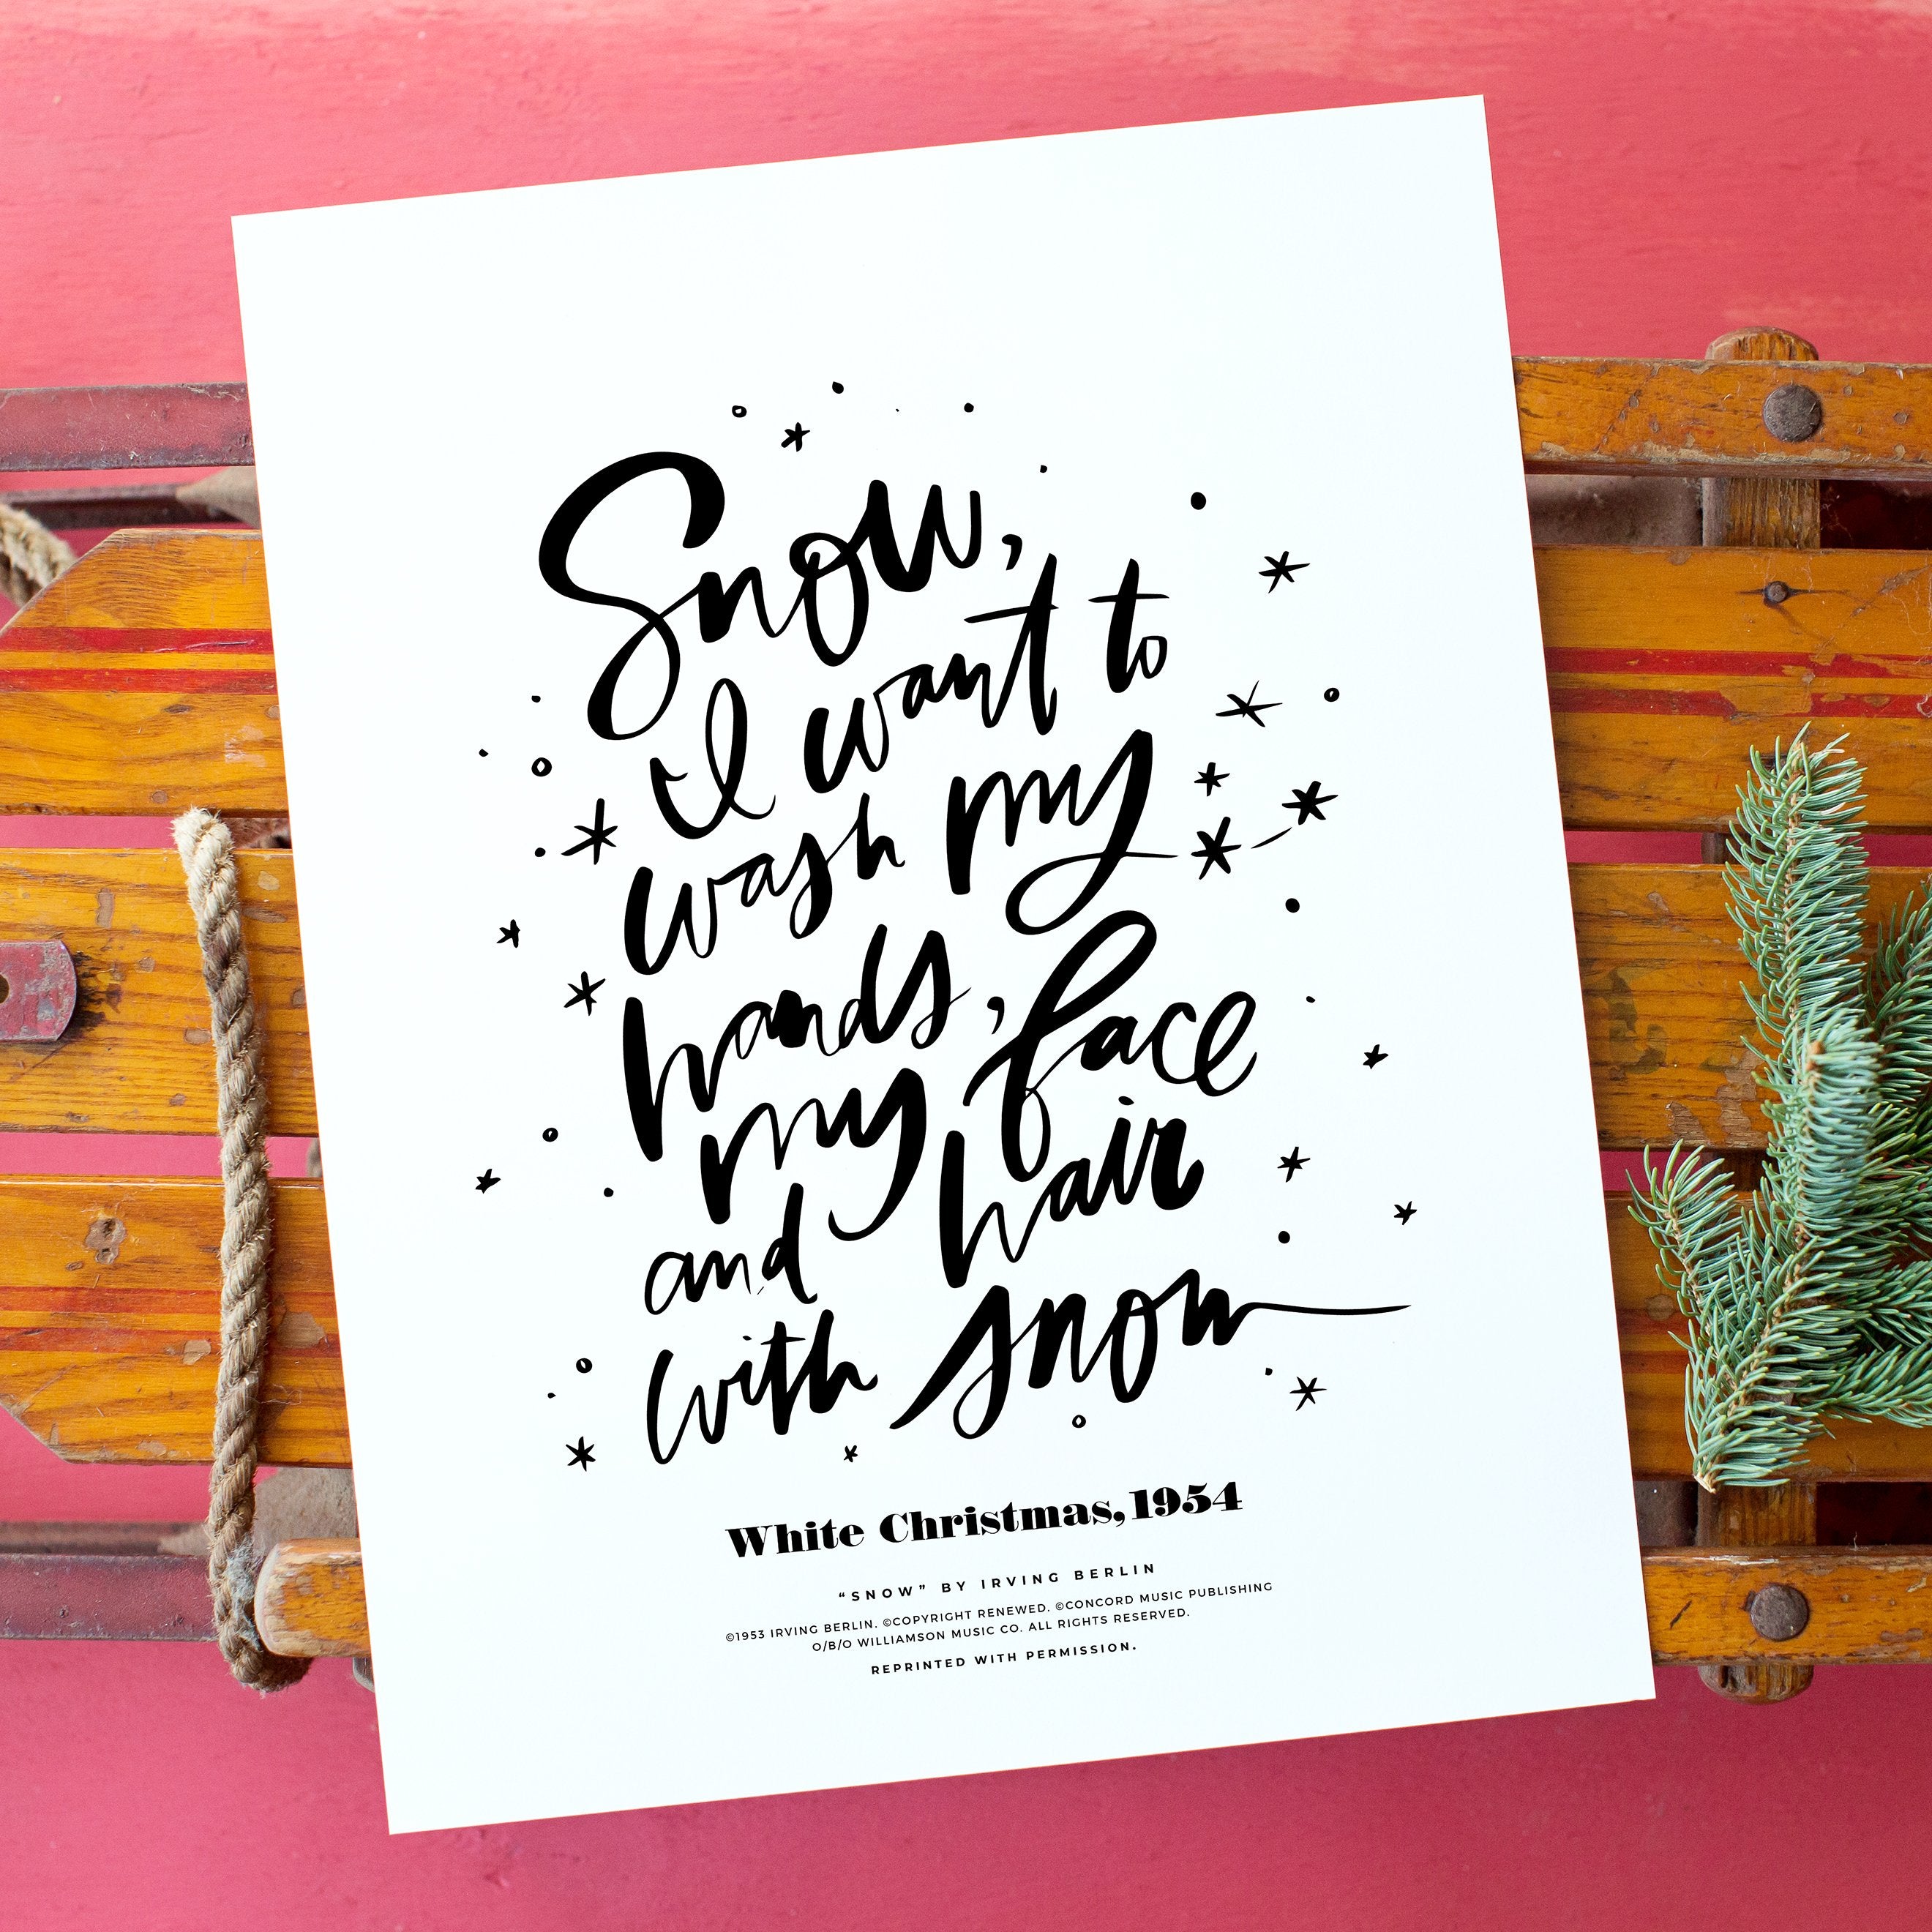 Snow,
I want to
wash my
hands,
my face
and hair
with snow
White Christmas, 1954
“SNOW” BY IRVING BERLIN
©1953 IRVING BERLIN. ©COPYRIGHT RENEWED. ©CONCORD MUSIC PUBLISHING
O/B/O WILLIAMSON MUSIC CO. ALL RIGHTS RESERVED.
REPRINTED WITH PERMISSION.